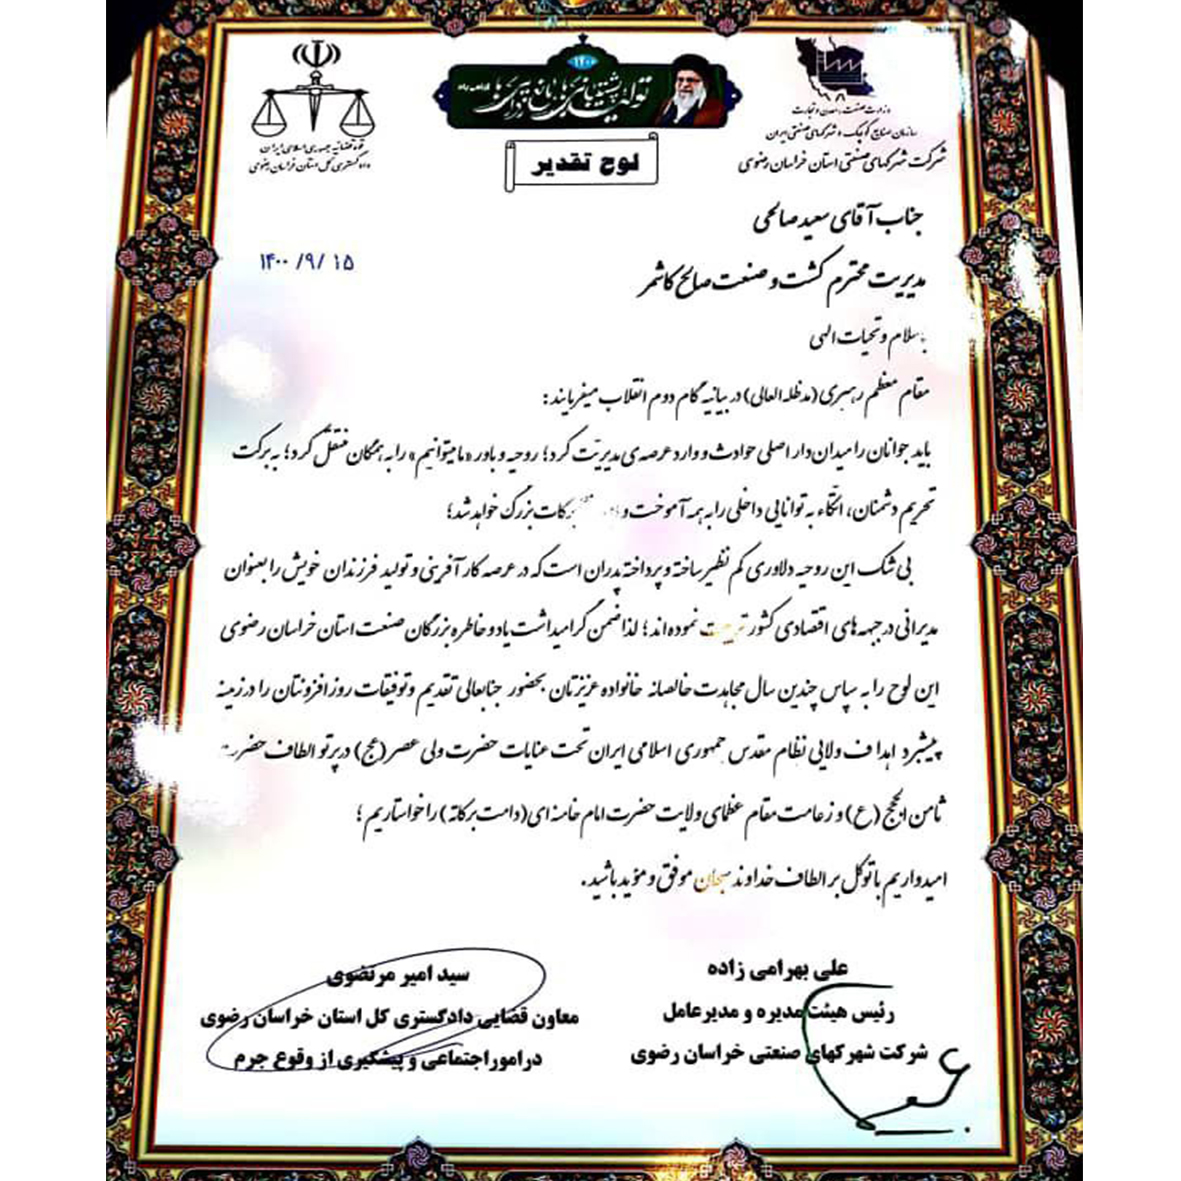 ۱۴۰۰
تولید؛ پشتیبانی‌ها، مانع‌زدایی‌ها
وزارت صنعت، معدن و تجارت
سازمان صنایع کوچک و شهرکهای صنعتی ایران
شرکت شهرکهای صنعتی استان خراسان رضوی
قوه قضائیه جمهوری اسلامی ایران
دادگستری کل استان خراسان رضوی
لوح تقدیر
۱۴۰۰/۹/۱۵
جناب آقای سعید صالحی
مدیریت محترم کشت و صنعت صالح کاشمر
باسلام و تحیات الهی
مقام معظم رهبری (مدظله العالی) در بیانیه گام دوم انقلاب میفرمایند :
باید جوانان را میدان دار اصلی حوادث و وارد عرصه‌ی مدیریّت کرد؛ روحیه و باور «ما میتوانیم» را به همگان منتقل کرد؛ به برکت
تحریم دشمنان، اتّکاء به توانایی داخلی را به همه آموخت و برکات بزرگ خواهد شد؛
بی شک این روحیه دلاوری کم نظیر ساخته و پرداخته پدران است که در عرصه کارآفرینی و تولید فرزندان خویش را بعنوان
مدیرانی در جبهه های اقتصادی کشور تربیت نموده اند؛ لذا ضمن گرامیداشت یاد و خاطره بزرگان صنعت استان خراسان رضوی
این لوح را به سپاس چندین سال مجاهدت خالصانه خانواده عزیزتان بحضور جنابعالی تقدیم و توفیقات روزافزونتان را در زمینه
پیشبرد اهداف ولایی نظام مقدس جمهوری اسلامی ایران تحت عنایات حضرت ولی عصر (عج) در پرتو الطاف حضرت
ثامن الحجج (ع) و زعامت مقام عظمای ولایت حضرت امام خامنه ای (دامت برکاته) را خواستاریم ؛
امیدواریم با توکل بر الطاف خداوند سبحان موفق و مؤید باشید.
علی بهرامی زاده
رئیس هیئت مدیره و مدیرعامل
شرکت شهرکهای صنعتی خراسان رضوی
سید امیر مرتضوی
معاون قضایی دادگستری کل استان خراسان رضوی
در امور اجتماعی و پیشگیری از وقوع جرم